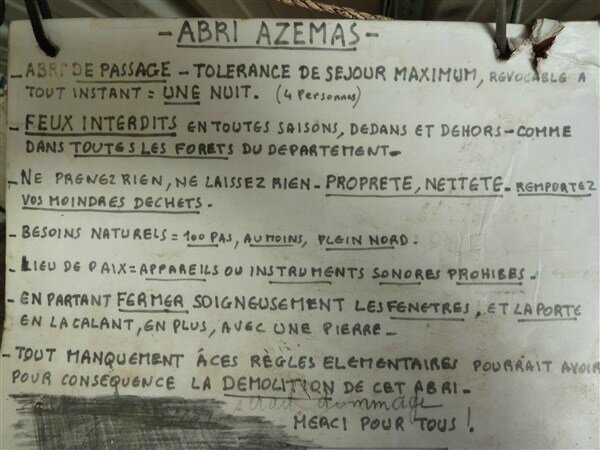 - ABRI AZEMAS -
- ABRI DE PASSAGE - TOLERANCE DE SEJOUR MAXIMUM, REVOCABLE A
TOUT INSTANT = UNE NUIT. (4 Personnes)
- FEUX INTERDITS EN TOUTES SAISONS, DEDANS ET DEHORS - COMME
DANS TOUTES LES FORETS DU DEPARTEMENT -
- NE PRENEZ RIEN, NE LAISSEZ RIEN - PROPRETE, NETTETE - REMPORTEZ
VOS MOINDRES DECHETS -
- BESOINS NATURELS = 100 PAS, AU MOINS, PLEIN NORD.
- LIEU DE PAIX = APPAREILS OU INSTRUMENTS SONORES PROHIBES -
- EN PARTANT FERMER SOIGNEUSEMENT LES FENETRES, ET LA PORTE
EN LA CALANT, EN PLUS, AVEC UNE PIERRE -
- TOUT MANQUEMENT ÁCES RÈGLES ELEMENTAIRES POURRAIT AVOIR
POUR CONSEQUENCE LA DEMOLITION DE CET ABRI -
serait dommage
MERCI POUR TOUS !